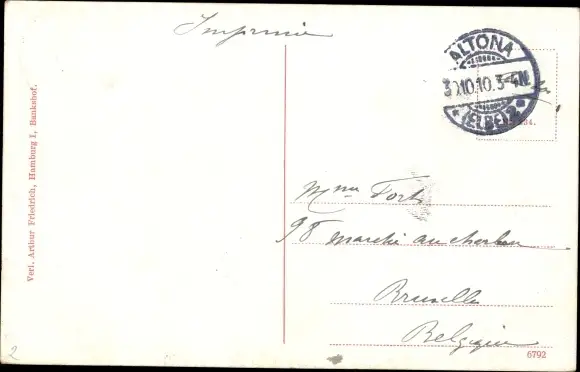 Imprimé
ALTONA
30.10.10.3-4N
* (ELBE) 2 *
Verl. Arthur Friedrich, Hamburg 1, Bankshof.
Mme Fort
98 marché au charbon
Bruxelles
Belgique
6792
2